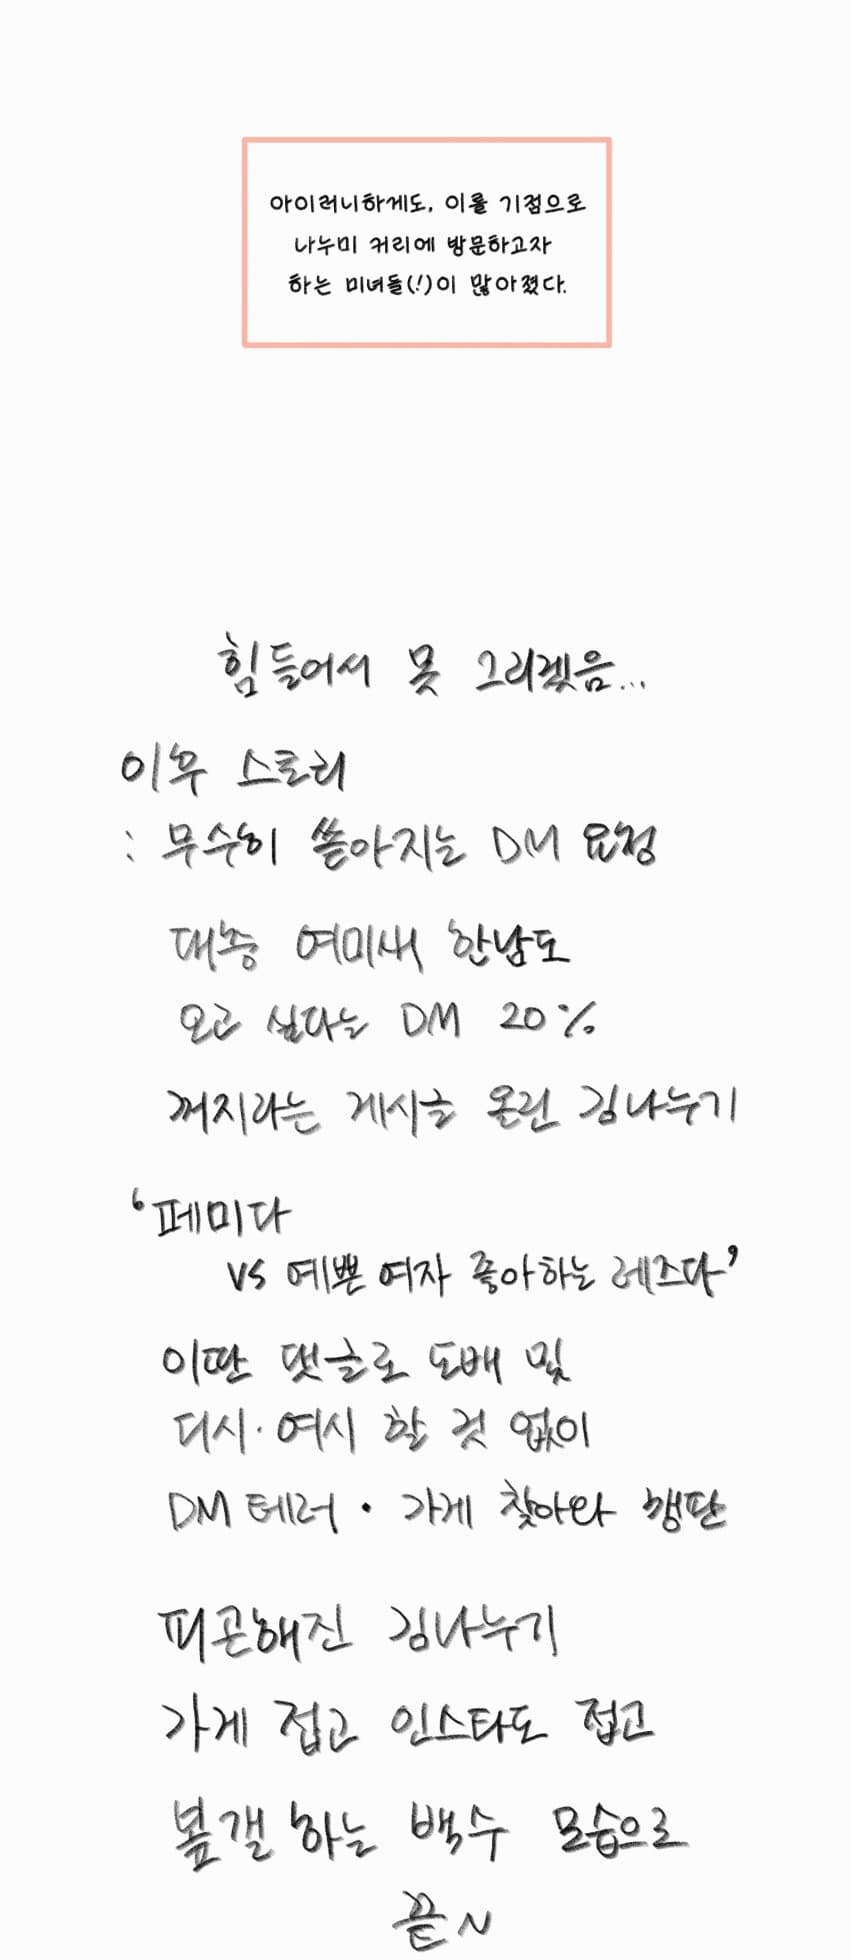 아이러니하게도, 이를 기점으로
나누미 커리에 방문하고자
하는 미녀들(!)이 많아졌다.
힘들어서 못 그리겠음...
이후 스토리
: 무수히 쏟아지는 DM 요청
대충 여미새 한남도
오고 싶다는 DM 20%
꺼지라는 게시글 올린 김나누기
'페미다
vs 예쁜 여자 좋아하는 레즈다'
이딴 댓글로 도배 및
디시·여시 할 것 없이
DM 테러 · 가게 찾아와 깽판
피곤해진 김나누기
가게 접고 인스타도 접고
봎갤 하는 백수 모습으로
끝~